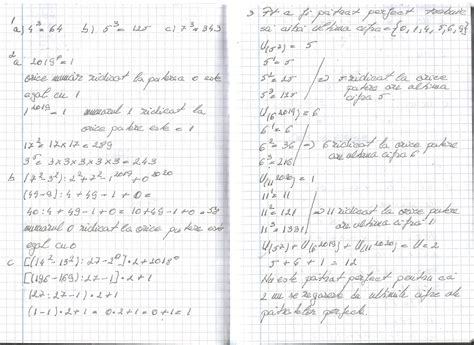 1
a) 4³ = 64   b) 5³ = 125   c) 7³ = 343
2
a 2018⁰ = 1
orice număr ridicat la puterea 0 este
egal cu 1
1²⁰¹⁹ = 1   numărul 1 ridicat la
orice putere este = 1
17² = 17 × 17 = 289
3⁵ = 3 × 3 × 3 × 3 × 3 = 243
b (7² - 3²) : 2² + 7² - 1²⁰¹⁹ + 0²⁰²⁰
(49 - 9) : 4 + 49 - 1 + 0 =
40 : 4 + 49 - 1 + 0 = 10 + 49 - 1 + 0 =
numărul 0 ridicat la orice putere este
egal cu 0
c [(14² - 13²) : 27 - 2⁰] · 2 + 2018⁰
[(196 - 169) : 27 - 1] · 2 + 1
(27 : 27 - 1) · 2 + 1
(1 - 1) · 2 + 1 = 0 · 2 + 1 = 0 + 1 = 1
3 Pt a fi pătrat perfect trebuie
să aibă ultima cifra = {0, 1, 4, 5, 6, 9}
= 5
5¹ = 5
5² = 25 => 5 ridicat la orice
5³ = 125 putere are ultima
cifra 5
U(6²⁰¹⁹) = 6
6¹ = 6
6² = 36 => 6 ridicat la orice putere
6³ = 216 are ultima cifra 6
U(11²⁰²⁰) = 1
11¹ = 11
11² = 121 => 11 ridicat la orice putere
11³ = 1331 are ultima cifra 1
+ U(6²⁰¹⁹) + U(11²⁰²⁰) = U = 2
5 + 6 + 1 = 12
Nu este pătrat perfect pentru că
2 nu se regăsește în ultimile cifre ale
pătratelor perfecte.